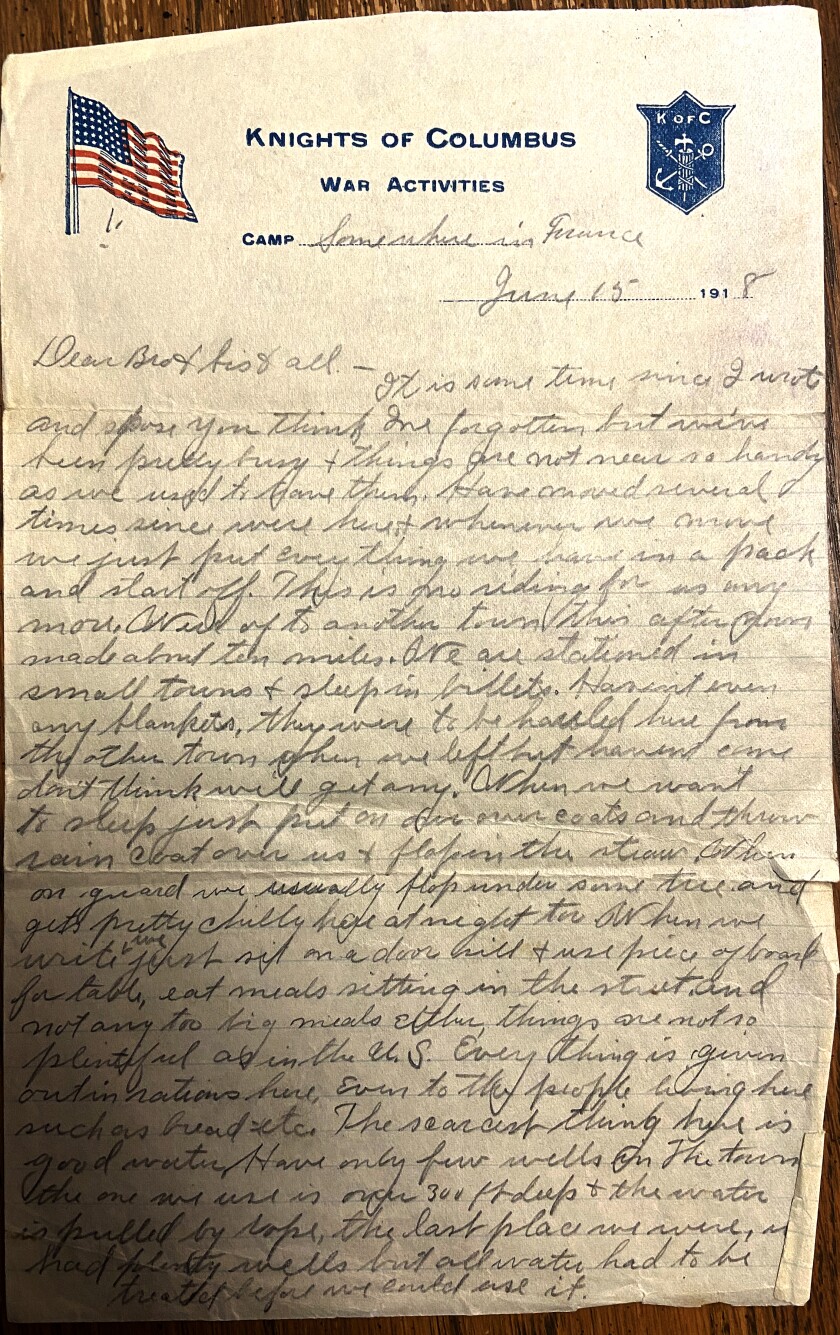 K OF C
KNIGHTS OF COLUMBUS
WAR ACTIVITIES
1.
CAMP Somewhere in France
June 15 1918
Dear Bro & Sis & all. —
It is some time since I wrote
and spose you think Ive forgotten but we've
been pretty busy & things are not near so handy
as we used to have them. Have moved several
times since were here & whenever we move
we just put everything we have in a pack
and start off. This is no riding for us any
more. Were of to another town this afternoon
made about ten miles. We are stationed in
small towns & sleep in billets. Havent even
any blankets, they were to be hauled here from
the other town when we left but havent come
dont think we'll get any. When we want
to sleep just put on our over coats and throw
rain coat over us & flop in the straw. When
on guard we usually flop under some tree and
gets pretty chilly here at night too. When we
write we just sit on a door sill & use piece of board
for table, eat meals sitting in the street and
not any too big meals either, things are not so
plentiful as in the U.S. Every thing is given
out in rations here, even to the people living here
such as bread etc. The scarcest thing here is
good water, Have only few wells in the town
the one we use is over 300 ft deep & the water
is pulled by rope, the last place we were,
had plenty wells but all water had to be
treated before we could use it.